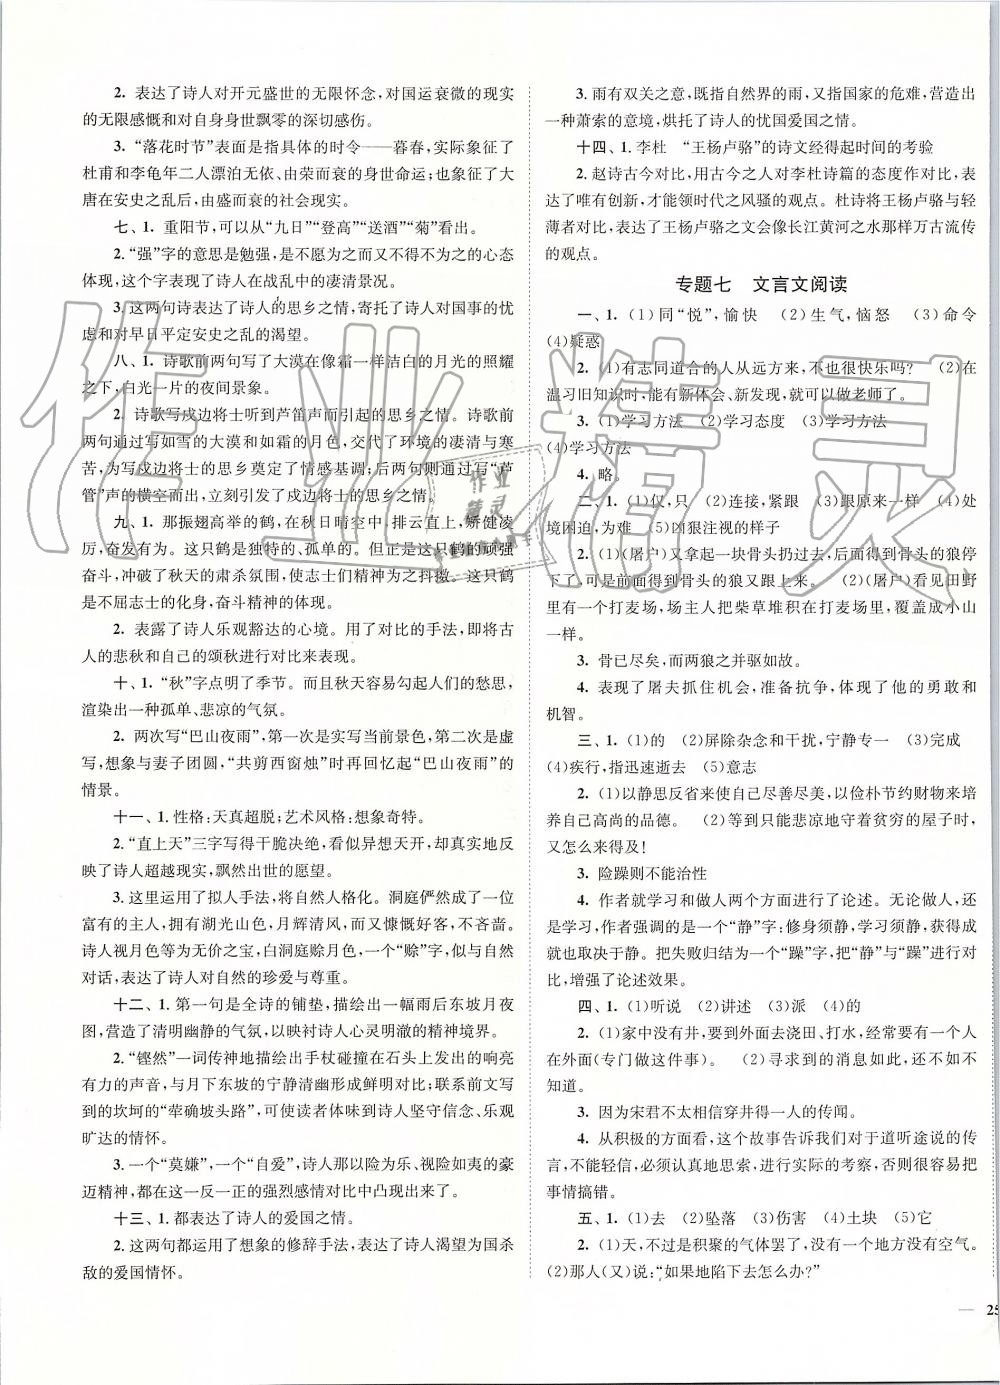 2. 表达了诗人对开元盛世的无限怀念,对国运衰微的现实
的无限感慨和对自身身世飘零的深切感伤。
3.“落花时节”表面是指具体的时令——暮春,实际象征了
杜甫和李龟年二人漂泊无依、由荣而衰的身世命运,象征了
大唐在安史之乱后,由盛而衰的社会现实。
七、1. 重阳节,可以从“九日”“登高”“送酒”“菊”看出。
2.“强”字的意思是勉强,是不愿为之而又不得不为之的心态
体现,这个字表现了诗人在战乱中的凄清景况。
3. 这两句诗表达了诗人的思乡之情,寄托了诗人对国事的忧
虑和对早日平定安史之乱的渴望。
八、1. 诗歌前两句写了大漠在像霜一样洁白的月光的照耀
之下,白光一片的夜间景象。
2. 诗歌写戍边将士听到芦笛声而引起的思乡之情。诗歌前
两句通过写如雪的大漠和如霜的月色,交代了环境的凄清与寒
苦,为写戍边将士的思乡奠定了情感基调;后两句则通过写“芦
管”声的横空而出,立刻引发了戍边将士的思乡之情。
九、1. 那振翅高举的鹤,在秋日晴空中,排云直上,矫健凌
厉,奋发有为。这只鹤是独特的、孤单的。但正是这只鹤的顽强
奋斗,冲破了秋天的肃杀氛围,使志士们精神为之抖擞。这只鹤
是不屈志士的化身,奋斗精神的体现。
2. 表露了诗人乐观豁达的心境。用了对比的手法,即将古
人的悲秋和自己的颂秋进行对比来表现。
十、1.“秋”字点明了季节。而且秋天容易勾起人们的愁思,
渲染出一种孤单、悲凉的气氛。
2. 两次写“巴山夜雨”,第一次是实写当前景色,第二次是虚
写,想象与妻子团圆,“共剪西窗烛”时再回顾“巴山夜雨”的
情景。
十一、1. 性格:天真超脱;艺术风格:想象奇特。
2.“直上天”三字写得干脆决绝,看似异想天开,却真实地反
映了诗人超越现实,飘然出世的愿望。
3. 这里运用了拟人手法,将自然人格化。洞庭俨然成了一位
富有的主人,拥有湖光山色,月辉清风,而又慷慨好客,不吝啬。
诗人视月色等为无价之宝,白洞庭赊月色,一个“赊”字,似与自然
对话,表达了诗人对自然的珍爱与尊重。
十二、1. 第一句是全诗的铺垫,描绘出一幅雨后东坡月夜
图,营造了清明幽静的气氛,以映衬诗人心灵明澈的精神境界。
2.“铿然”一词传神地描绘出手杖碰撞在石头上发出的响亮
有力的声音,与月下东坡的宁静清幽形成鲜明对比;联系前文写
到的坎坷的“荦确坡头路”,可使读者体味到诗人坚守信念、乐观
旷达的情怀。
3. 一个“莫嫌”,一个“自爱”,诗人那以险为乐、视险如夷的豪
迈精神,都在这一反一正的强烈感情对比中凸现出来了。
十三、1. 都表达了诗人的爱国之情。
2. 这两句都运用了想象的修辞手法,表达了诗人渴望为国杀
敌的爱国情怀。
3. 雨有双关之意,既指自然界的雨,又指国家的危难,营造出
一种萧索的意境,烘托了诗人的忧国爱国之情。
十四、1. 李杜 “王杨卢骆”的诗文经得起时间的考验
2. 赵诗古今对比,用古今之人对李杜诗篇的态度作对比,表
达了唯有创新,才能领时代之风骚的观点。杜诗将王杨卢骆与轻
薄者对比,表达了王杨卢骆之文会像长江黄河之水那样万古流传
的观点。
专题七 文言文阅读
一、1. (1)同“悦”,愉快 (2)生气,恼怒 (3)命令
(4)疑惑
2. (1)有志同道合的人从远方来,不也很快乐吗? (2)在
温习旧知识时,能有新体会、新发现,就可以做老师了。
3. (1)学习方法 (2)学习态度 (3)学习方法
(4)学习方法
4. 略。
二、1. (1)仅,只 (2)连接,紧跟 (3)跟原来一样 (4)处
境困迫,为难 (5)凶狠注视的样子
2. (1)(屠户)又拿起一块骨头扔过去,后面得到骨头的狼停
下了,可是前面得到骨头的狼又跟上来。 (2)(屠户)看见田野
里有一个打麦场,场主人把柴草堆积在打麦场里,覆盖成小山
一样。
3. 骨已尽矣,而两狼之并驱如故。
4. 表现了屠夫抓住机会,准备抗争,体现了他的勇敢和
机智。
三、1. (1)的 (2)屏除杂念和干扰,宁静专一 (3)完成
(4)疾行,指迅速逝去 (5)意志
2. (1)以静思反省来使自己尽善尽美,以俭朴节约财物来培
养自己高尚的品德。 (2)等到只能悲凉地守着贫穷的屋子时,
又怎么来得及!
3. 险躁则不能治性
4. 作者就学习和做人两个方面进行了论述。无论做人,还
是学习,作者强调的是一个“静”字:修身须静,学习须静,获得成
功也取决于静。把失败归结为一个“躁”字,把“静”与“躁”进行对
比,增强了论述效果。
四、1. (1)听说 (2)讲述 (3)派 (4)的
2. (1)家中没有井,要到外面去浇田、打水,经常要有一个人
在外面(专门做这件事)。 (2)寻求到的消息如此,还不如不
知道。
3. 因为宋君不太相信穿井得一人的传闻。
4. 从积极的方面看,这个故事告诉我们对于道听途说的传
言,不能轻信,必须认真地思索,进行实际的考察,否则很容易把
事情搞错。
五、1. (1)去 (2)坠落 (3)伤害 (4)土块 (5)它
2. (1)天,不过是积聚的气体罢了,没有一个地方没有空气。
(2)那人(又)说:“如果地陷下去怎么办?”
— 25
作业精灵
作业
精灵